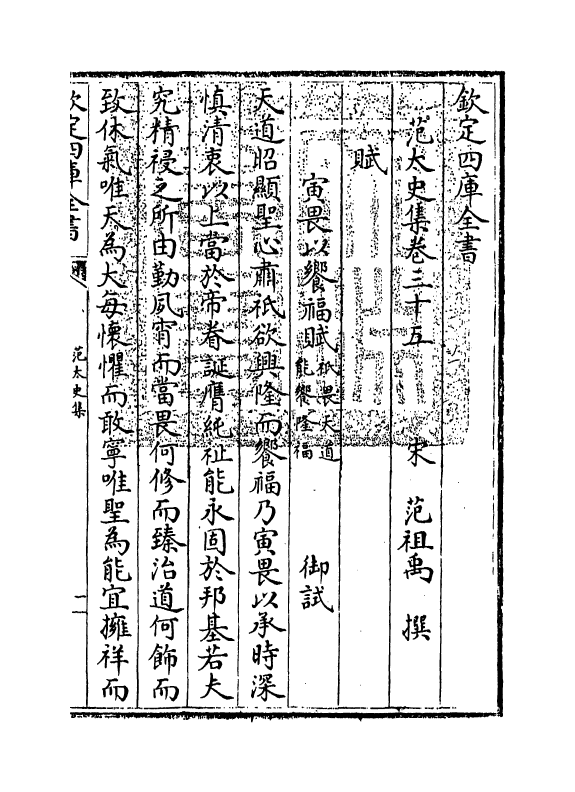 欽定四庫全書
范太史集卷三十五　宋　范祖禹　撰
賦
寅畏以饗福賦祗畏天道能饗隆福　御試
天道昭顯聖心肅祇欲興隆而饗福乃寅畏以承時深
慎清衷以上當於帝眷誕膺純祉能永固於邦基若夫
究精祲之所由勤夙宵而當畏何修而臻治道何飾而
致休氣唯天為大每懷懼而敢寧唯聖為能宜擁祥而
欽定四庫全書
范太史集
一